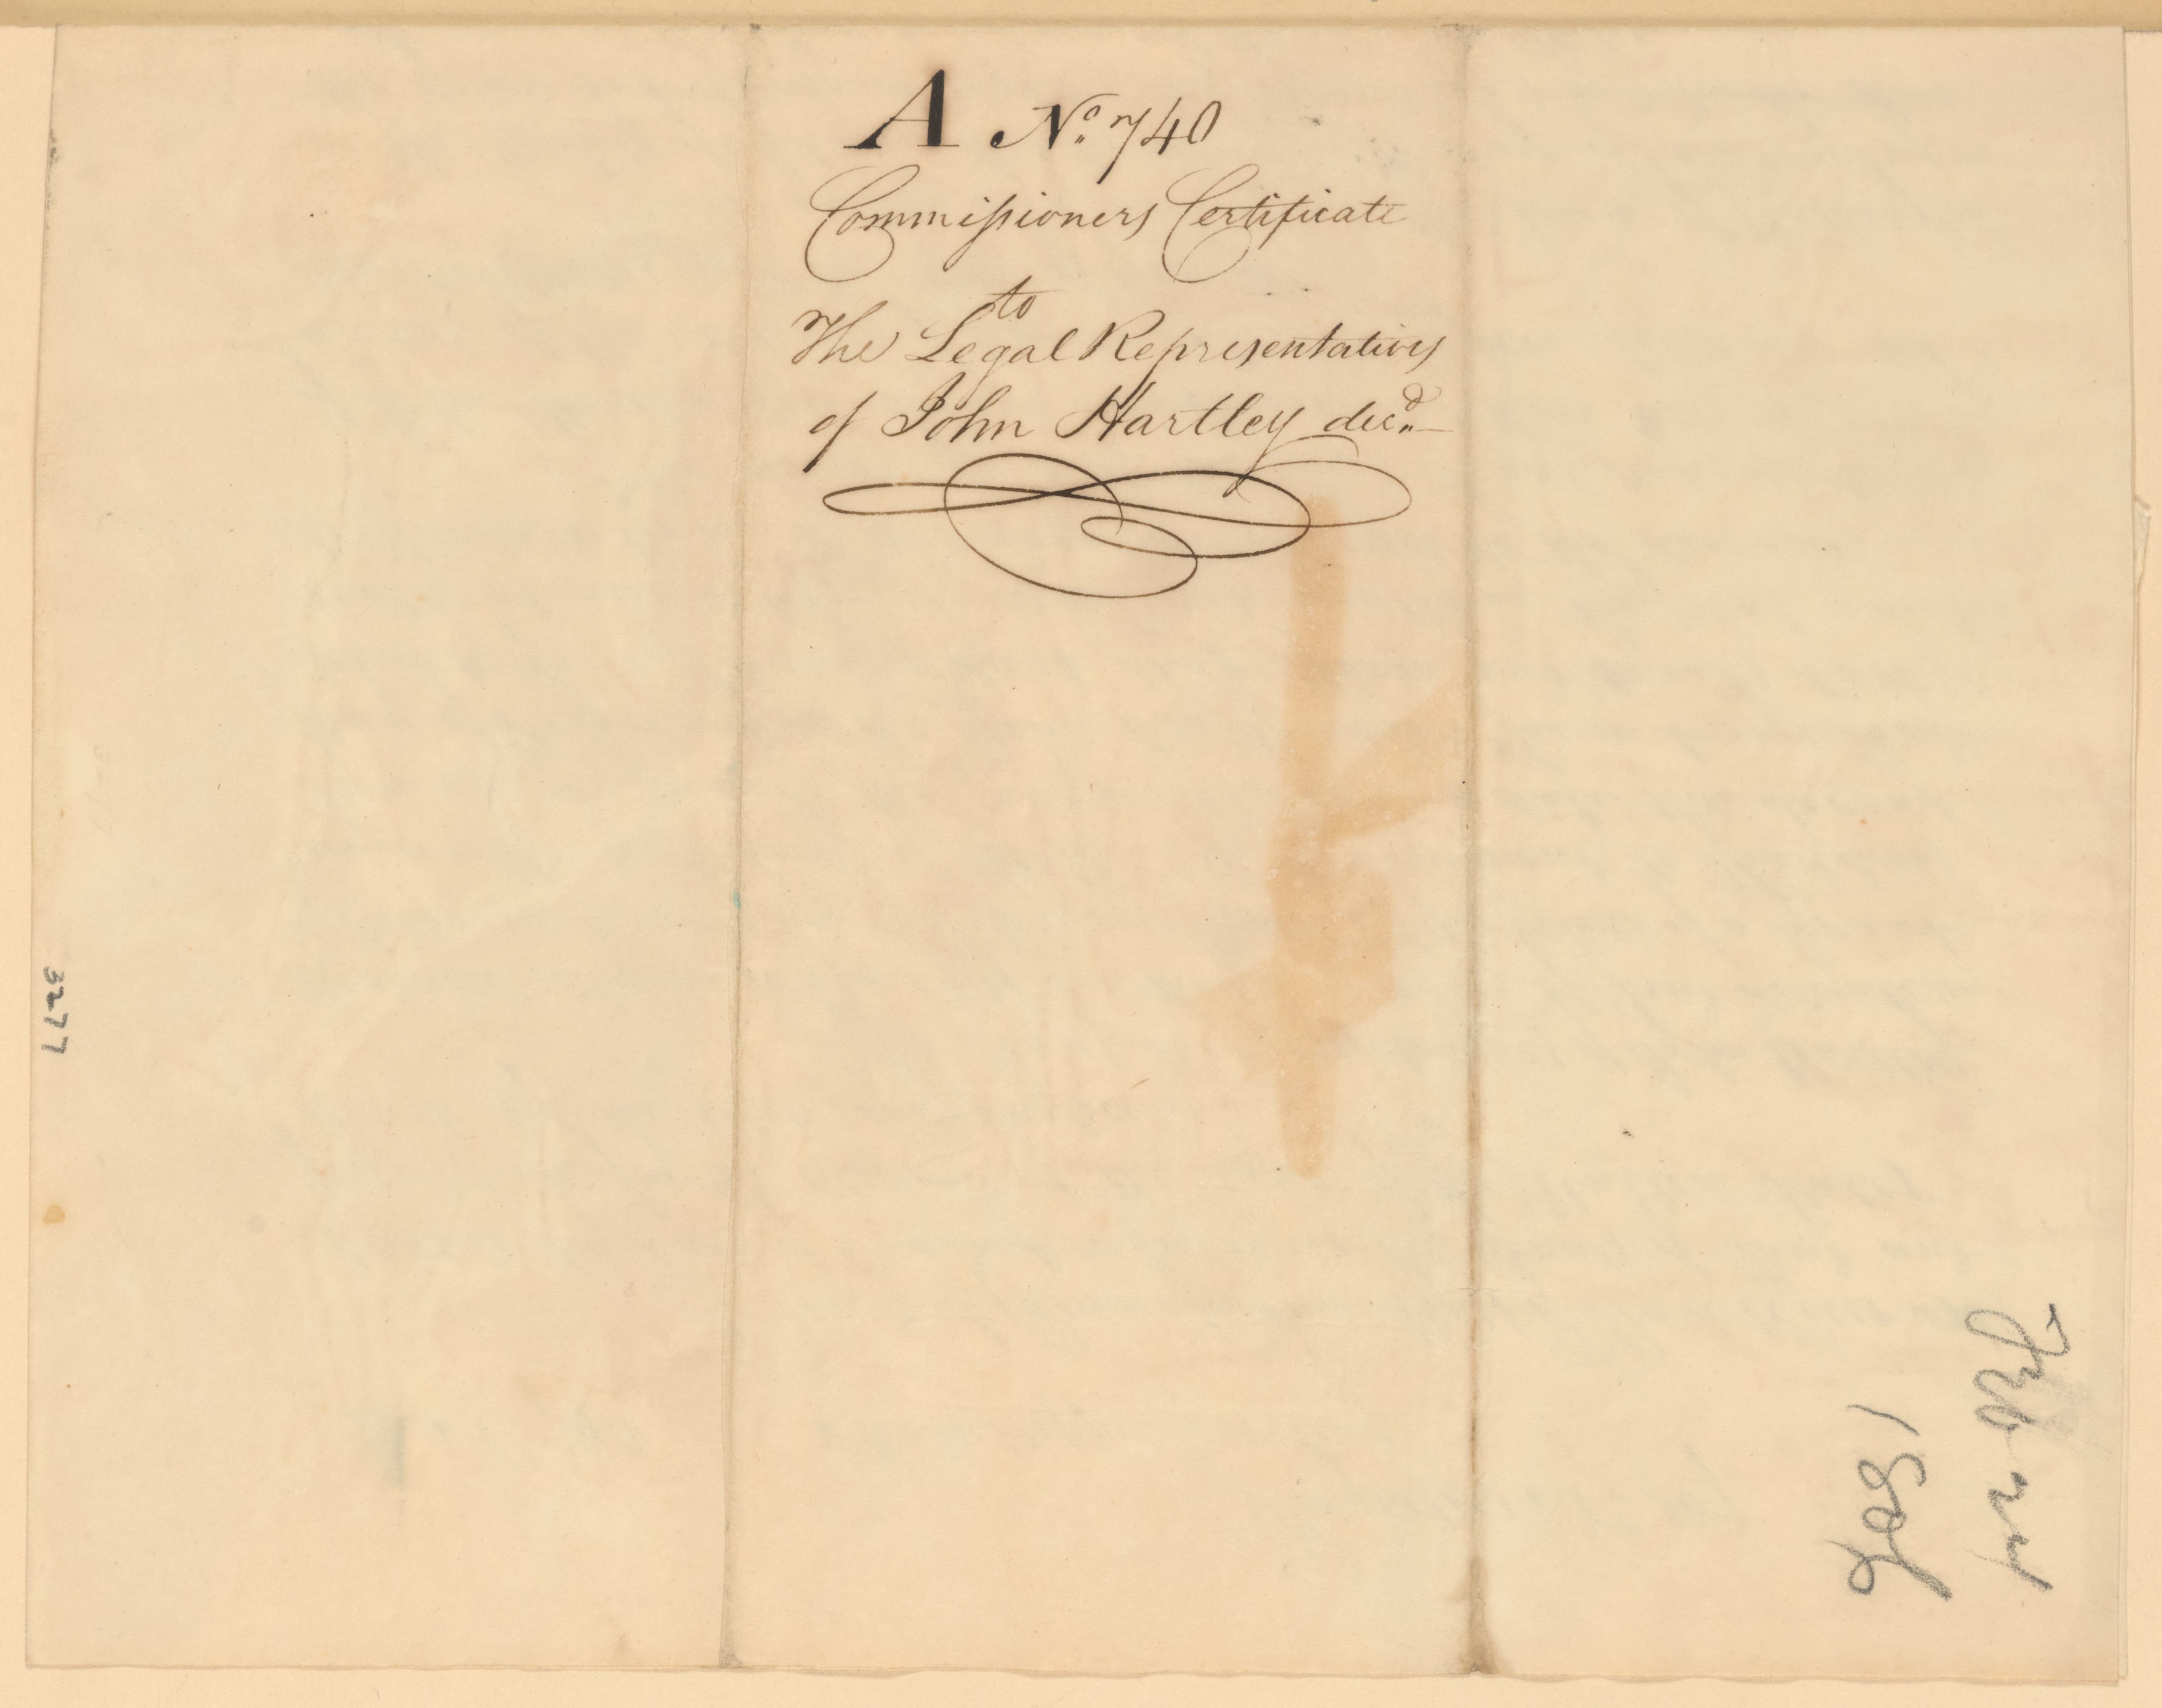 A Nº. 740
Commiſsioners Certificate
to
The Legal Representatives
of John Hartley decd.
3277